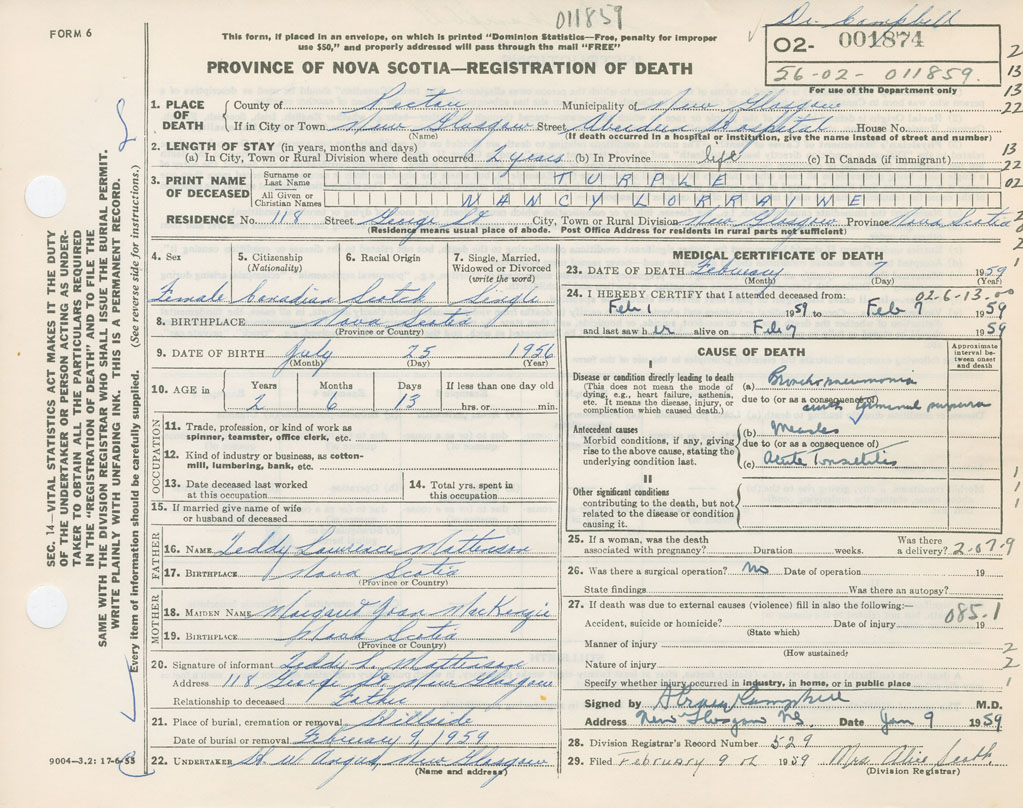 FORM 6
011859
Dr. Campbell
This form, if placed in an envelope, on which is printed "Dominion Statistics—Free, penalty for improper
use $50," and properly addressed will pass through the mail "FREE"
02- 001874
56-02- 011859.
For use of the Department only
PROVINCE OF NOVA SCOTIA—REGISTRATION OF DEATH
1. PLACE OF DEATH County of Pictou Municipality of New Glasgow
If in City or Town New Glasgow Street Aberdeen Hospital House No.
(Name) (If death occurred in a hospital or institution, give the name instead of street and number)
2. LENGTH OF STAY (in years, months and days)
(a) In City, Town or Rural Division where death occurred 2 years (b) In Province life (c) In Canada (if immigrant)
3. PRINT NAME OF DECEASED
Surname or Last Name TURPLE
All Given or Christian Names NANCY LORRAINE
RESIDENCE No. 118 Street George St City, Town or Rural Division New Glasgow Province Nova Scotia
(Residence means usual place of abode. Post Office Address for residents in rural parts not sufficient)
4. Sex Female
5. Citizenship (Nationality) Canadian
6. Racial Origin Scotch
7. Single, Married, Widowed or Divorced (write the word) Single
8. BIRTHPLACE Nova Scotia
(Province or Country)
9. DATE OF BIRTH July 25 1956
(Month) (Day) (Year)
10. AGE in Years Months Days If less than one day old
2 6 13 hrs. or min.
OCCUPATION
11. Trade, profession, or kind of work as
spinner, teamster, office clerk, etc.
12. Kind of industry or business, as cotton-
mill, lumbering, bank, etc.
13. Date deceased last worked
at this occupation
14. Total yrs. spent in
this occupation
15. If married give name of wife
or husband of deceased
FATHER
16. NAME Teddy Lawrence Matterson
17. BIRTHPLACE Nova Scotia
(Province or Country)
MOTHER
18. MAIDEN NAME Margaret Joan MacKenzie
19. BIRTHPLACE Nova Scotia
(Province or Country)
20. Signature of informant Teddy L. Matterson
Address 118 George St. New Glasgow
Relationship to deceased Father
21. Place of burial, cremation or removal Hillside
Date of burial or removal February 9, 1959
22. UNDERTAKER W. Angus, New Glasgow
(Name and address)
MEDICAL CERTIFICATE OF DEATH
23. DATE OF DEATH February 7 1959
(Month) (Day) (Year)
02-6-13.00
24. I HEREBY CERTIFY that I attended deceased from:
Feb 1 1959 to Feb 7 1959
and last saw her alive on Feb 7 1959
CAUSE OF DEATH
Approximate interval between onset and death
I
Disease or condition directly leading to death
(This does not mean the mode of
dying, e.g., heart failure, asthenia,
etc. It means the disease, injury, or
complication which caused death.)
(a) Bronchopneumonia
due to (or as a consequence of)
with terminal purpura
Antecedent causes
Morbid conditions, if any, giving
rise to the above cause, stating the
underlying condition last.
(b) Measles
due to (or as a consequence of)
(c) Acute Tonsillitis
II
Other significant conditions
contributing to the death, but not
related to the disease or condition
causing it.
25. If a woman, was the death
associated with pregnancy? Duration weeks. Was there
a delivery? 2-07-9
26. Was there a surgical operation? No Date of operation 19
State findings Was there an autopsy?
27. If death was due to external causes (violence) fill in also the following:—
085.1
Accident, suicide or homicide? Date of injury 19
(State which)
Manner of injury
(How sustained)
Nature of injury
Specify whether injury occurred in industry, in home, or in public place
Signed by Campbell M.D.
Address New Glasgow NS. Date Jan 9 1959
28. Division Registrar's Record Number 529
29. Filed February 9th 1959 Mrs Alice
(Division Registrar)
SEC. 14—VITAL STATISTICS ACT MAKES IT THE DUTY
OF THE UNDERTAKER OR PERSON ACTING AS UNDER-
TAKER TO OBTAIN ALL THE PARTICULARS REQUIRED
IN THE "REGISTRATION OF DEATH" AND TO FILE THE
SAME WITH THE DIVISION REGISTRAR WHO SHALL ISSUE THE BURIAL PERMIT.
WRITE PLAINLY WITH UNFADING INK. THIS IS A PERMANENT RECORD.
Every item of information should be carefully supplied. (See reverse side for instructions.)
9004—3.2: 17-6-53
2
13
13
22
13
22
02
2
2
1
1
1
1
2
2
1